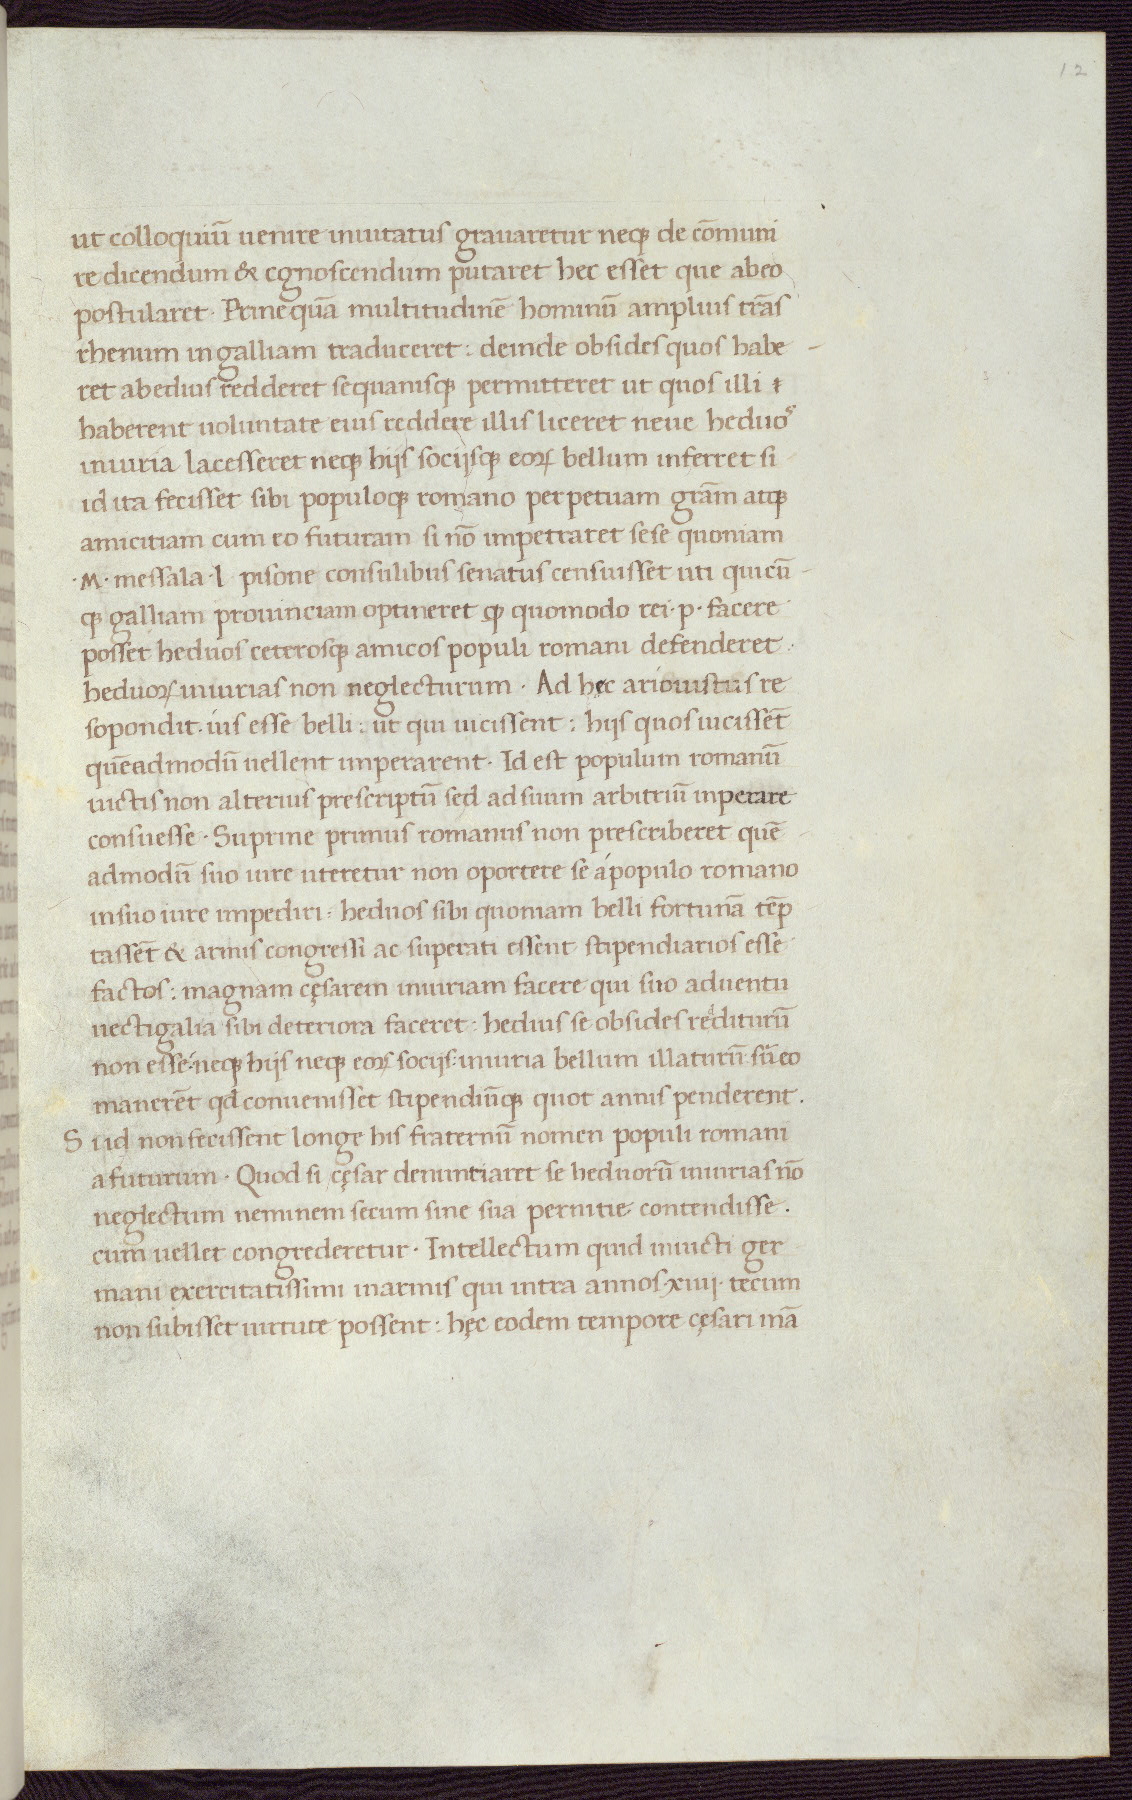 12
ut colloquiū uenire inuitatus grauaretur neqꝫ de cōmuni
re dicendum & cgnoscendum putaret hec esset que abeo
postularet · Prinequā multitudinē hominū amplius trās
rhenum ingalliam traduceret : deinde obsides quos habe -
ret abeduis redderet sequanisqꝫ permitteret ut quos illi
haberent uoluntate eius reddere illis liceret neue heduos
iniuria lacesseret neqꝫ hijs socijsqꝫ eoꝝ bellum inferret si
id ita fecisset sibi populoqꝫ romano perpetuam grām atqꝫ
amicitiam cum eo futuram si nō impetraret sese quoniam
· M · messala · l pisone consulibus senatus censuisset uti quicū -
qꝫ galliam prouinciam optineret qꝫ quomodo rei · p · facere
posset heduos ceterosqꝫ amicos populi romani defenderet ·
heduoꝝ iniurias non neglecturum · Ad hęc ariouistus re
sopondit · ius esse belli : ut qui uicissent : hijs quos uicissēt
quēadmodū uellent imperarent · Id est populum romanū
uictis non alterius prescriptū sed ad suum arbitriū inperare
consuesse · Suprine primus romanus non prescriberet quē -
admodū suo iure uteretur non oportere se á populo romano
insuo iure impediri : heduos sibi quoniam belli fortunā tēp
tassēt & armis congressi ac superati essent stipendiarios esse
factos : magnam cęsarem iniuriam facere qui suo aduentu
uectigalia sibi deteriora faceret : heduis se obsides rediturū
non esse : neqꝫ hijs neqꝫ eoꝝ socijs : iniuria bellum illaturū eo
manerēt qd conuenisset stipendiūqꝫ quot annis penderent .
S iid non fecissent longe his fraternū nomen populi romani
afuturum · Quod si cęsar denuntiaret se heduorū iniurias nō
neglectum neminem secum sine sua pernitie contendisse .
cum uellet congrederetur · Intellectum quid inuicti ger
mani exercitatissimi inarmis qui intra annos · xiiij · tecum
non subisset uirtute possent : hęc eodem tempore cęsari mā